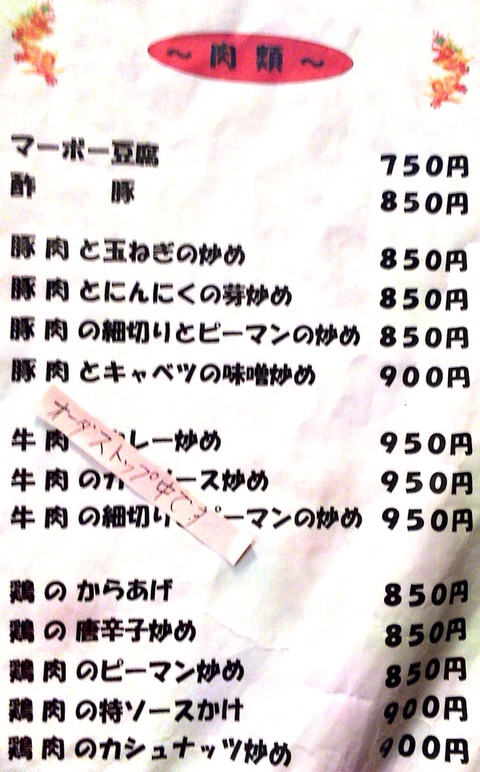 ～ 肉 類 ～
マーボー豆腐 750円
酢 豚 850円
豚 肉 と玉ねぎの炒め 850円
豚 肉 とにんにくの芽炒め 850円
豚 肉 の細切りとピーマンの炒め 850円
豚 肉 とキャベツの味噌炒め 900円
オーダストップ中です
牛 肉 レー炒め 950円
牛 肉 のカ ース炒め 950円
牛 肉 の細切り ーマンの炒め 950円
鶏 の からあげ 850円
鶏 の 唐辛子炒め 850円
鶏 肉 のピーマン炒め 850円
鶏 肉 の特ソースかけ 900円
鶏 肉 のカシュナッツ炒め 900円